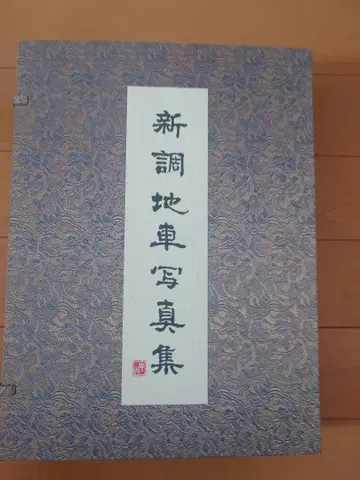 新調地車写真集